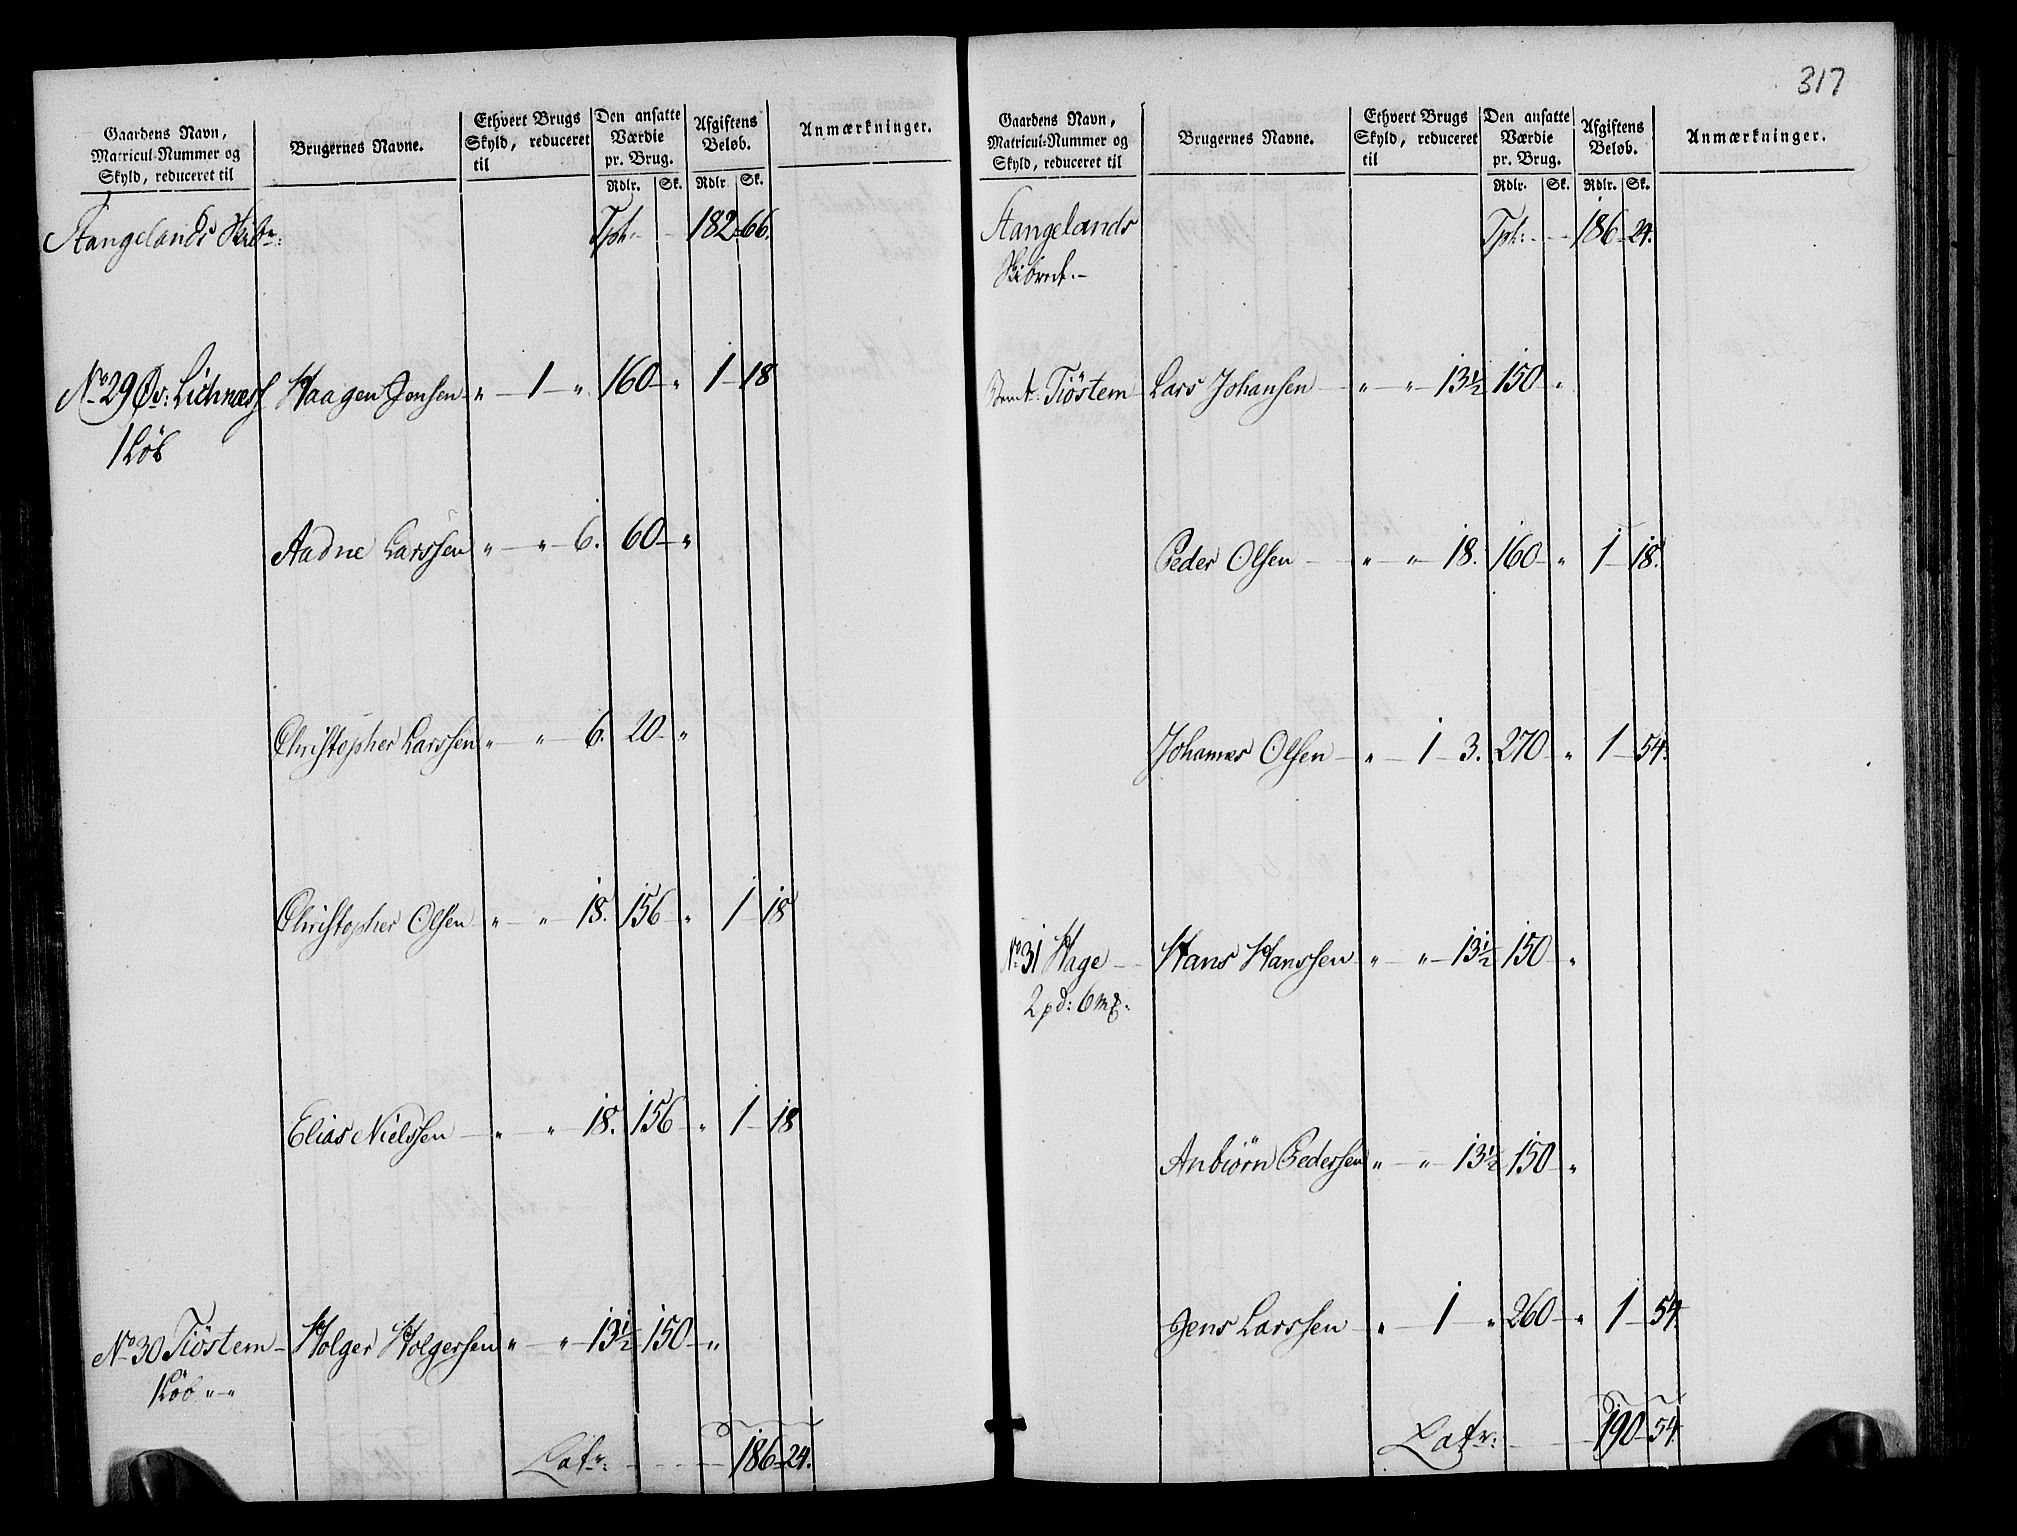 Gaardens Navn,
Matricul-Nummer og
Skyld, reduceret til
Brugernes Navne.
Ethvert Brugs
Skyld, reduceret
til
Den ansatte
Værdie
pr. Brug.
Rdlr. Sk.
Afgiftens
Beløb.
Rdlr. Sk.
Anmærkninger.
Stangelands Skibr: Tpt: 182 66.
No. 29 Øv: Lichness Haagen Jensen " 1 " 160 " 1 18
1 Løb
Aadne Larssen " " 6. 60 "
Christopher Larssen " " 6. 20 "
Christopher Olsen " " 18. 156 " 1 18
Elias Nielssen " " 18. 156 " 1 18
No. 30 Tiöstem Holger Holgersen " " 13½ 150 "
1 Løb " "
Latr: 186 24.
317
Gaardens Navn,
Matricul-Nummer og
Skyld, reduceret til
Brugernes Navne.
Ethvert Brugs
Skyld, reduceret
til
Den ansatte
Værdie
pr. Brug.
Rdlr. Sk.
Afgiftens
Beløb.
Rdlr. Sk.
Anmærkninger.
Stangelands Tpt: 186 24.
Skibred.
Tiöstem Lars Johansen " " 13½ 150 "
Peder Olsen " " 18. 160 " 1 18.
Johannes Olsen " 1 3. 270 " 1 54.
No. 31 Hage Hans Hanssen " " 13½ 150 "
2 pd: 6 mk.
Anbiörn Pedersen " " 13½ 150 "
Jens Larssen " 1 " 260 " 1 54.
Latr: 190 54.